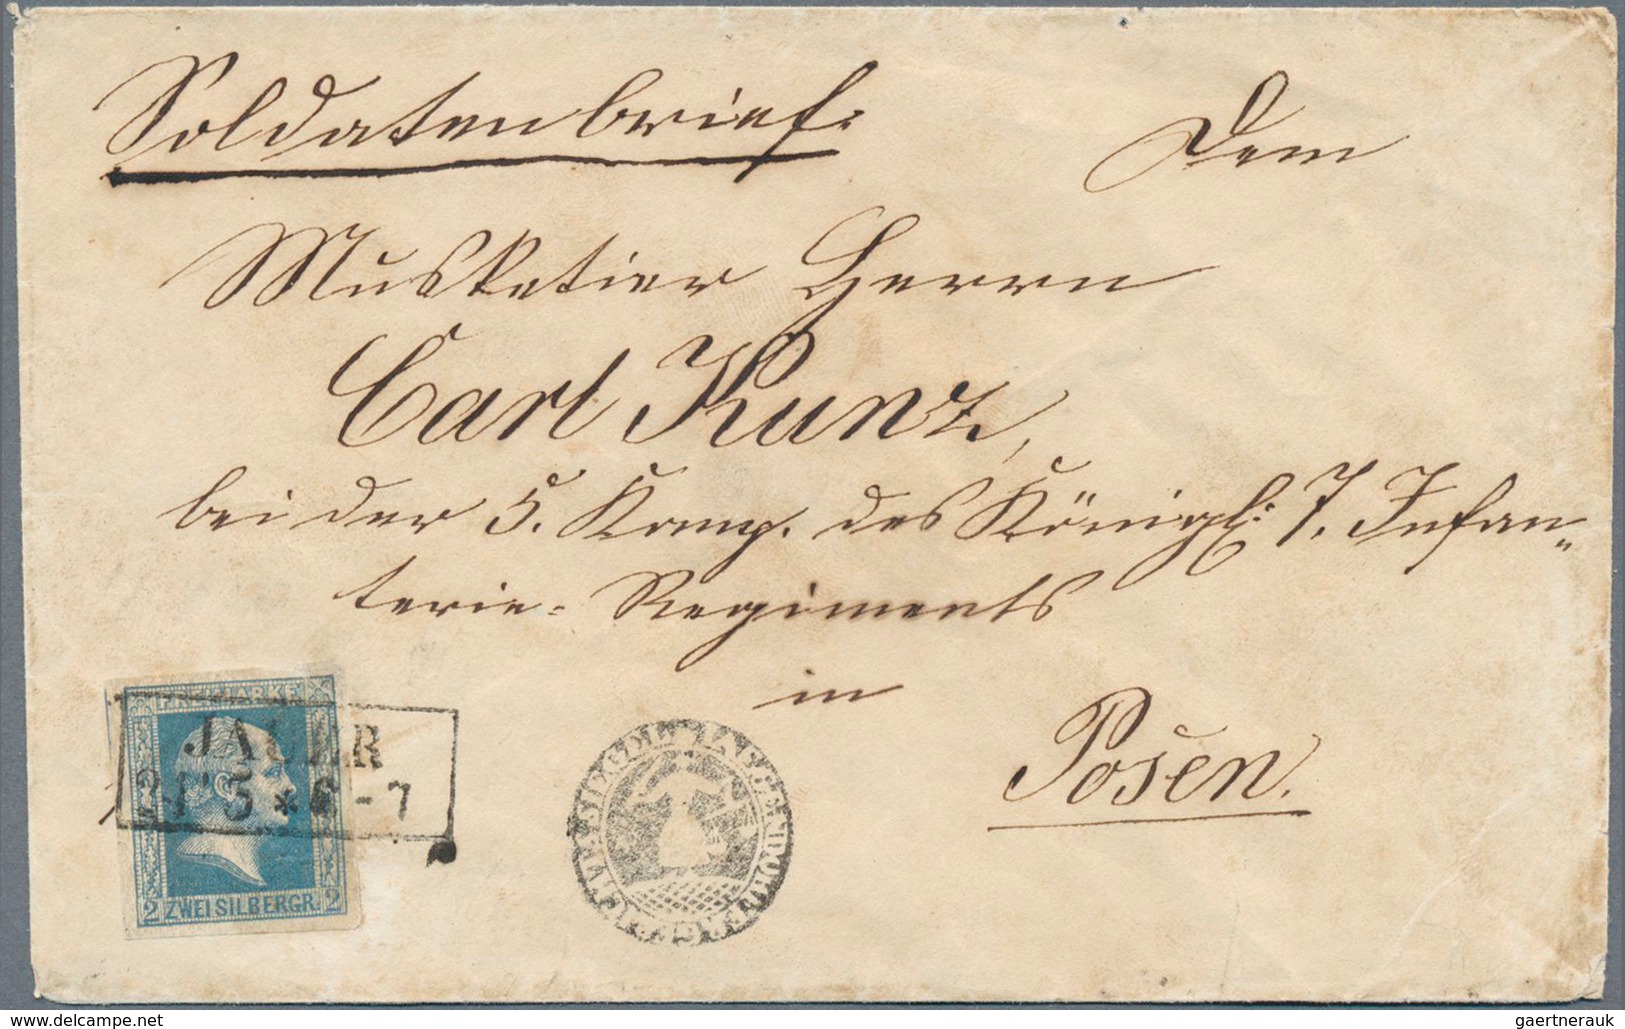 Soldatenbrief.
Dem
Musketier Herrn
Carl Kunz,
bei der 5. Komp. des Königl: 7. Infan-
terie-Regiments
in
Posen.
FREIMARKE
JAUER
5 * 6-7
2 ZWEI SILBERGR. 2
© www.delcampe.net
gaertnerauk